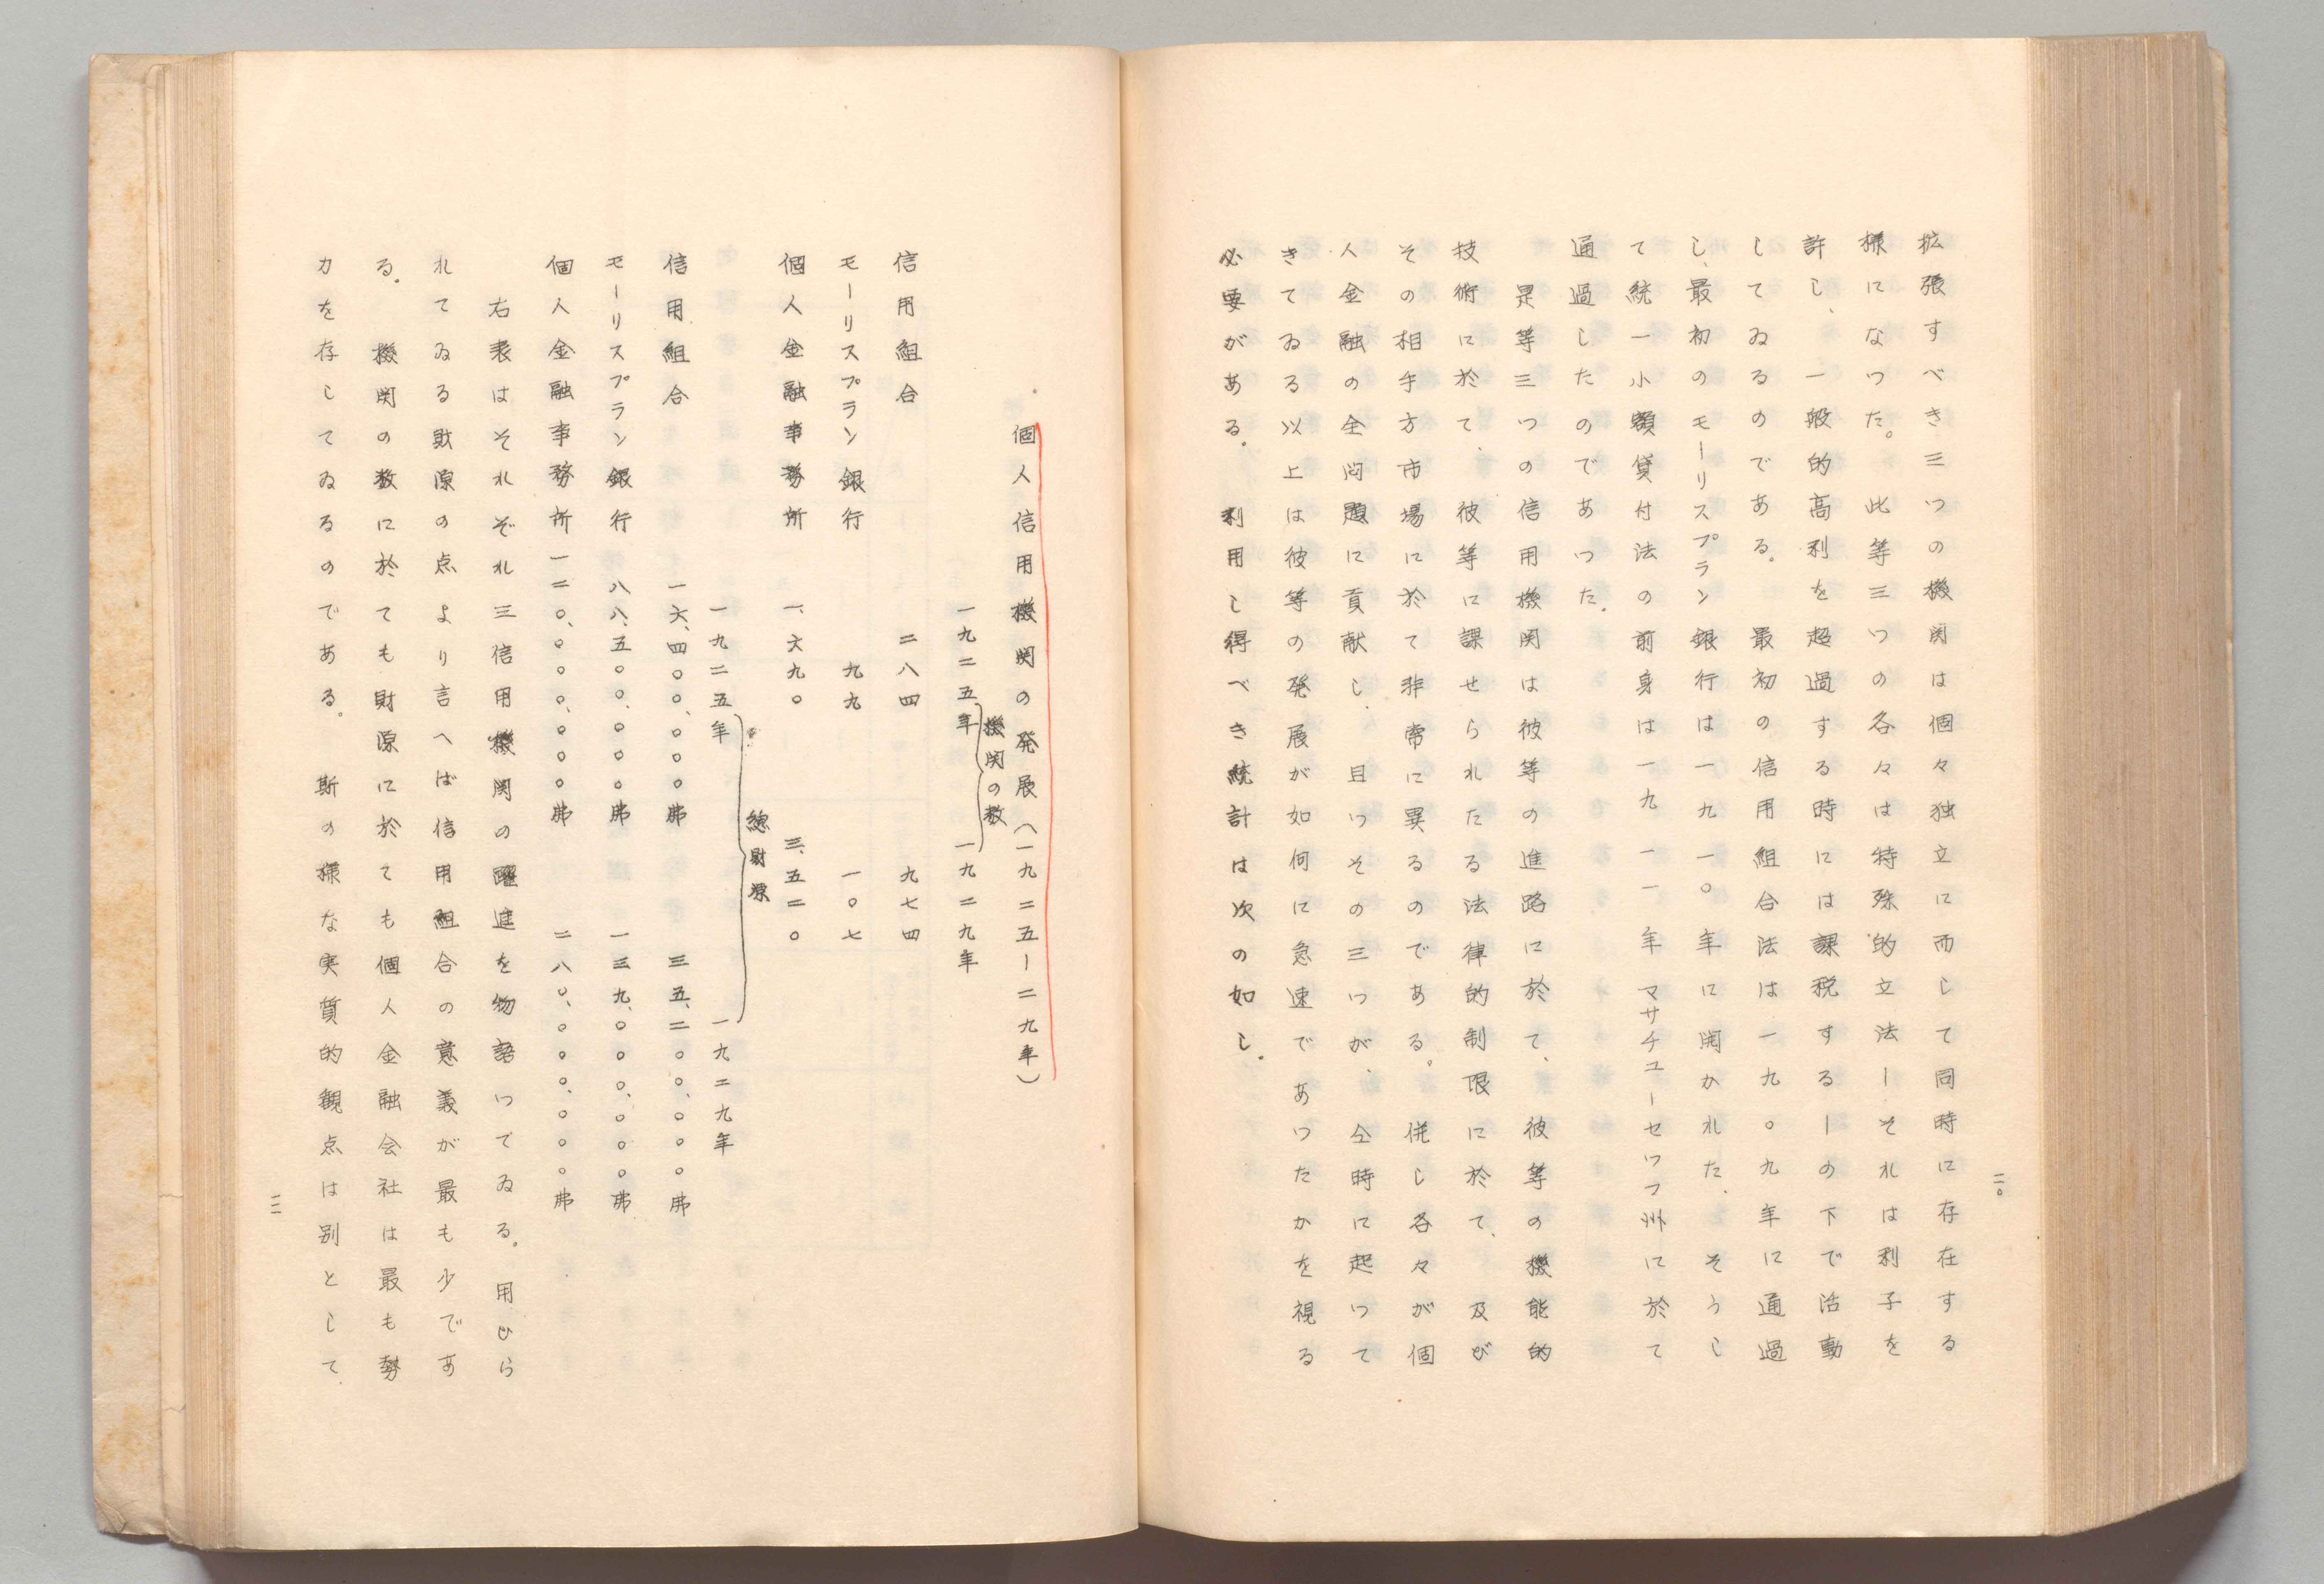 二〇
拡張すべき三つの機関は個々独立に而して同時に存在する
様になつた。此等三つの各々は特殊的立法ーそれは利子を
許し、一般的高利を超過する時には課税するーの下で活動
してゐるのである。最初の信用組合法は一九〇九年に通過
し、最初のモーリスプラン銀行は一九一〇年に開かれた、そうし
て統一小額貸付法の前身は一九一一年マサチユーセツツ州に於て
通過したのであつた。
是等三つの信用機関は彼等の進路に於て、彼等の機能的
技術に於て、彼等に課せられたる法律的制限に於て、及び
その相手方市場に於て非常に異るのである。併し各々が個
人金融の全问題に貢献し、且つその三つが、仝時に起つて
きてゐる以上は彼等の発展が如何に急速であつたかを視る
必要がある。利用し得べき統計は次の如し。
個人信用機関の発展(一九二五ー二九年)
機関の数
一九二五年 一九二九年
信用組合 二八四 九七四
モーリスプラン銀行 九九 一〇七
個人金融事務所 一、六九〇 三、五二〇
総財源
一九二五年 一九二九年
信用組合 一六、四〇〇、〇〇〇弗 三五、二〇〇、〇〇〇弗
モーリスプラン銀行 八八、五〇〇、〇〇〇弗 一三九、〇〇〇、〇〇〇弗
個人金融事務所 一二〇、〇〇〇、〇〇〇弗 二八〇、〇〇〇、〇〇〇弗
右表はそれぞれ三信用機関の躍進を物語つてゐる。用ひら
れてゐる財源の点より言へば信用組合の意義が最も少であ
る。機関の数に於ても財源に於ても個人金融会社は最も勢
力を存してゐるのである。斯の様な実質的観点は別として、
二一